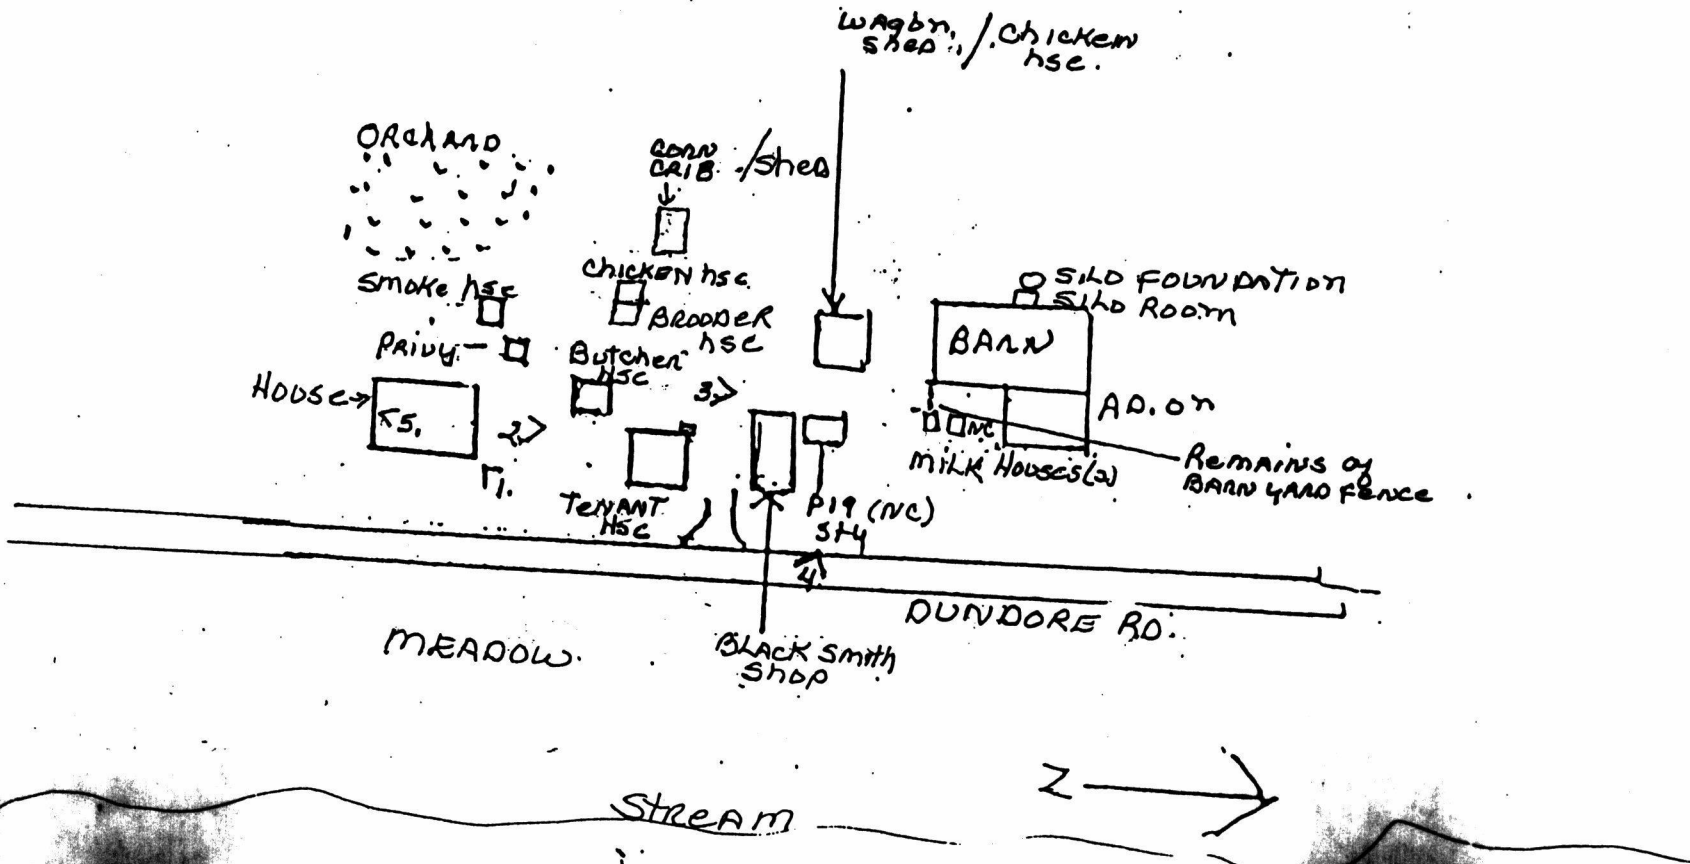 Wagon / Chicken
Shed hse.
ORCHARD
CORN
CRIB /Shed
Smoke hsc
Chicken hsc.
SILO FOUNDATION
SILO ROOM
BRODDER
hsc
Privy
Butcher
hsc
BARN
House
5.
2.
3.
AD.on
NC
MILK Houses(2)
Remains of
BARN YARD FENCE
1.
TENANT
HSC
PIG (NC)
Sty
4.
DUNDORE RD.
MEADOW
BLACK Smith
Shop
Z
STREAM